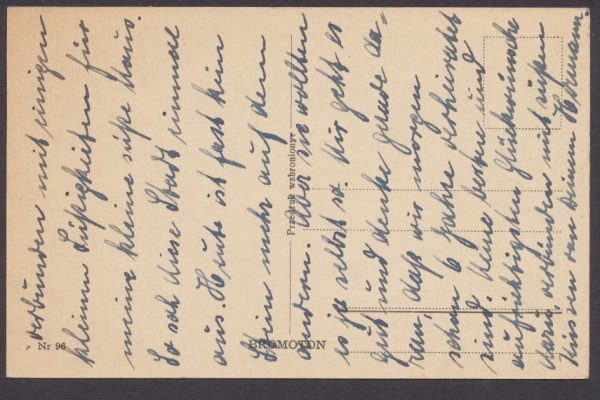 verbunden mit einigen
kleinen Süßigkeiten für
meine kleine süße Maus.
So sah diese Stadt einmal
aus. Heute ist fast kein
Stein mehr auf dem
andern. Aber sie wollten
es ja selbst so. Mir geht es
gut und denke gerade da-
ran, daß wir morgen
schon 6 Jahre verheiratet
sind. Meine besten und
aufrichtigsten Glückwünsche
dazu verbunden mit süßen
Küssen von Deinem
Przedruk wzbroniony.
Nr 96
BROMOTON